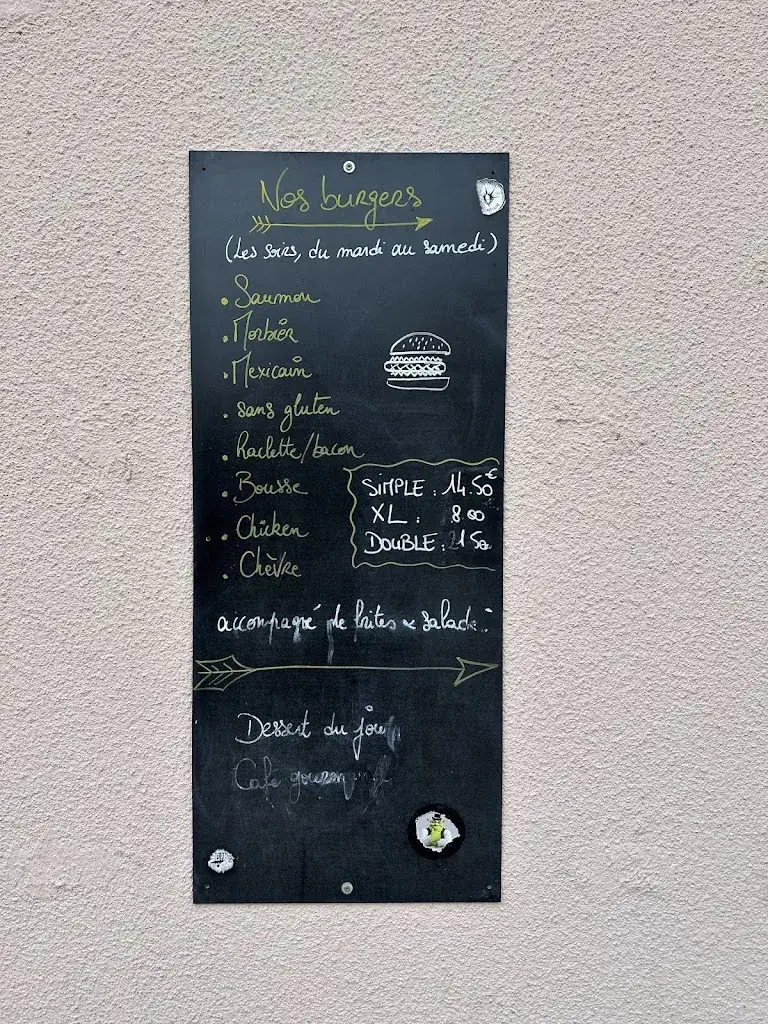 Nos burgers
(Les soirs, du mardi au samedi)
. Saumon
. Morbier
. Mexicain
. sans gluten
. Raclette/bacon
. Bousse
. Chicken
. Chèvre
SIMPLE : 14.50€
XL : 8.00
DOUBLE : 21.50
accompagné de frites & salade
Dessert du jour
Café gourmand